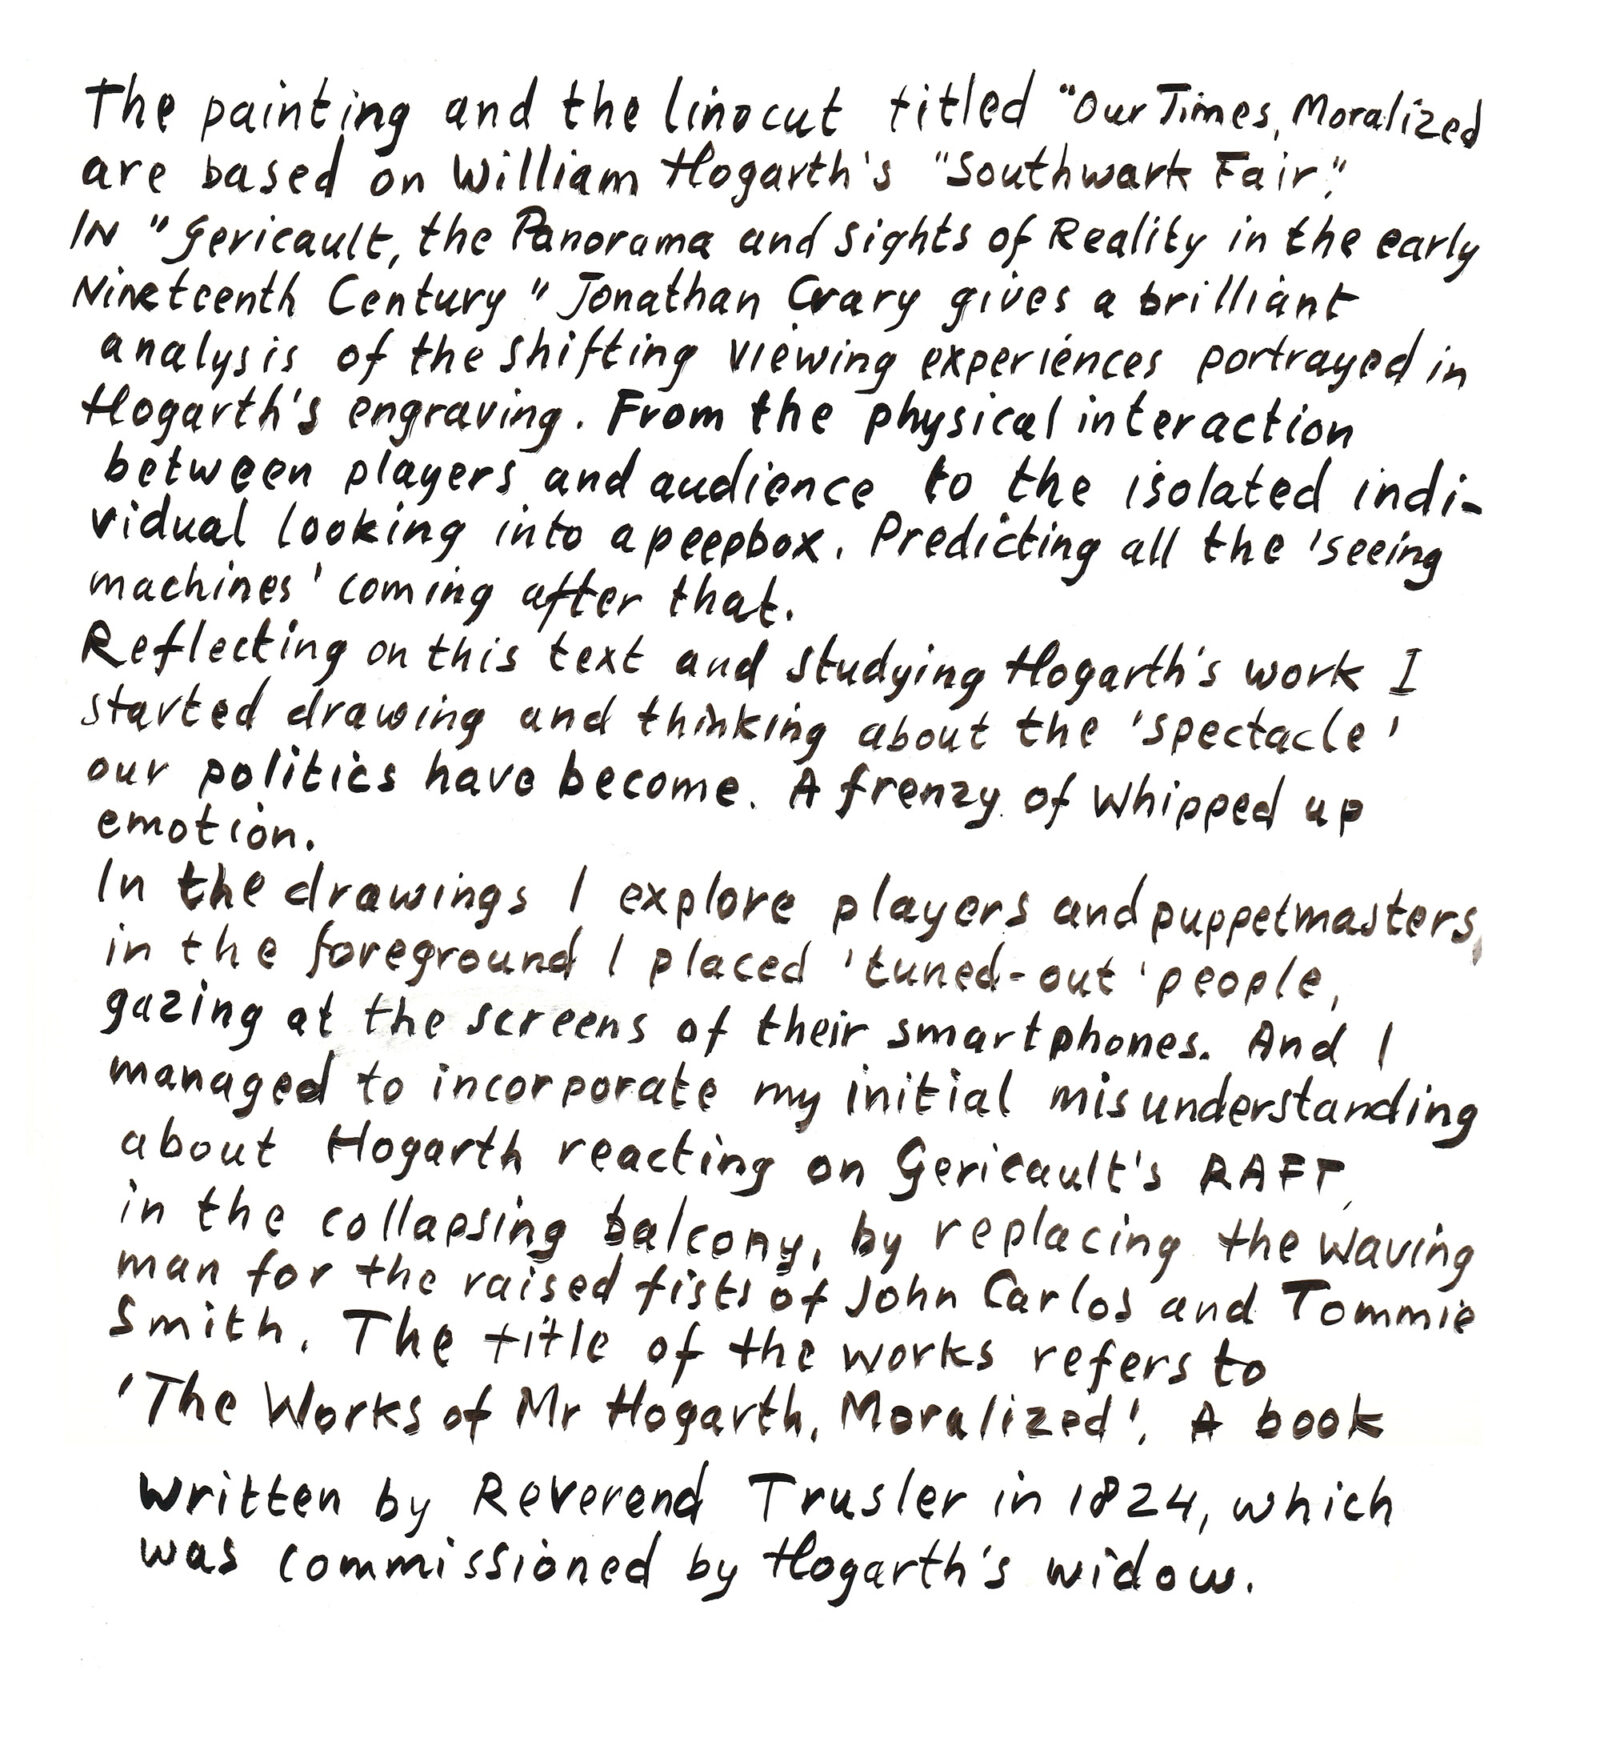 The painting and the linocut titled "Our Times, Moralized
are based on William Hogarth's "Southwark Fair".
IN "Gericault, the Panorama and Sights of Reality in the early
Nineteenth Century" Jonathan Crary gives a brilliant
analysis of the shifting viewing experiences portrayed in
Hogarth's engraving. From the physical interaction
between players and audience to the isolated indi-
vidual looking into a peepbox. Predicting all the 'seeing
machines' coming after that.
Reflecting on this text and studying Hogarth's work I
started drawing and thinking about the 'spectacle'
our politics have become. A frenzy of whipped up
emotion.
In the drawings I explore players and puppetmasters,
in the foreground I placed 'tuned-out' people,
gazing at the screens of their smartphones. And I
managed to incorporate my initial misunderstanding
about Hogarth reacting on Gericault's RAFT,
in the collapsing balcony, by replacing the waving
man for the raised fists of John Carlos and Tommie
Smith. The title of the works refers to
'The Works of Mr Hogarth, Moralized'. A book
written by Reverend Trusler in 1824, which
was commissioned by Hogarth's widow.